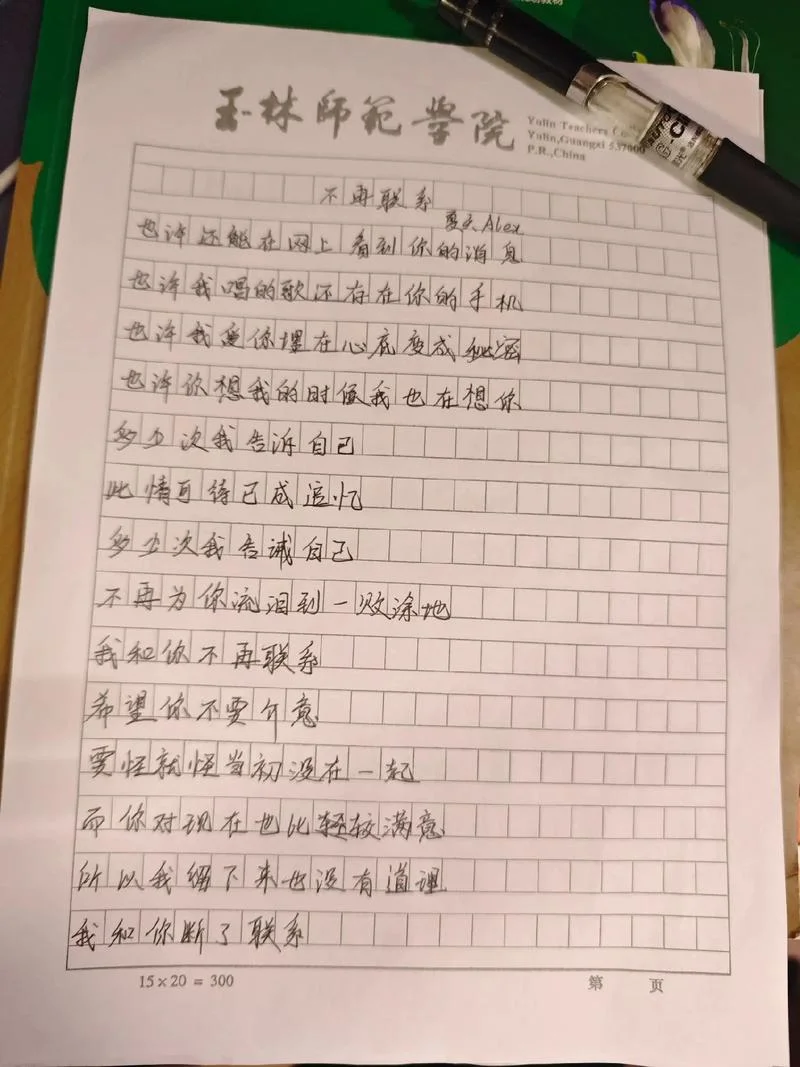 玉林师范学院
Yulin Teachers Co
Yulin,Guangxi 537000
P.R.,China
不再联系
夏天Alex
也许还能在网上看到你的消息
也许我唱的歌还存在你的手机
也许我爱你埋在心底变成秘密
也许你想我的时候我也在想你
多少次我告诉自己
此情可待已成追忆
多少次我告诫自己
不再为你流泪到一败涂地
我和你不再联系
希望你不要介意
要怪就怪当初没在一起
而你对现在也比轻较满意
所以我留下来也没有道理
我和你断了联系
15×20=300
第 页